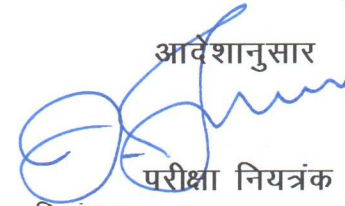 आदेशानुसार
परीक्षा नियत्रंक